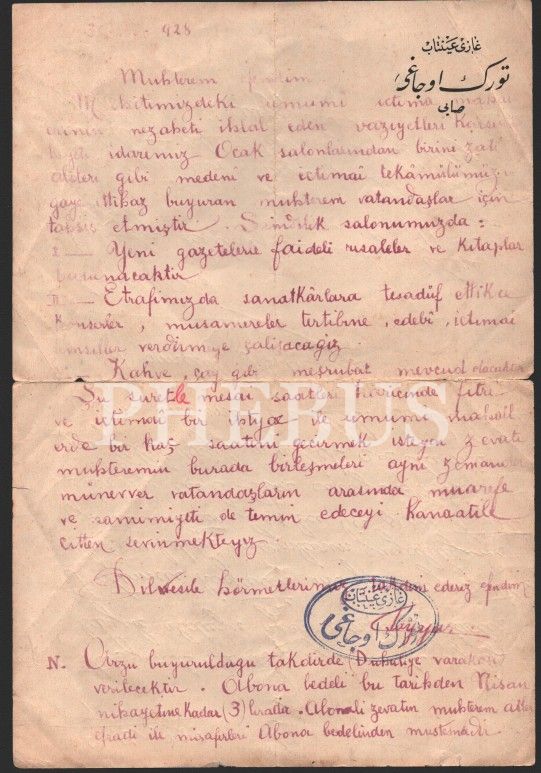 928
غازی عینتاب
تورك اوجاغی
Muhterem efendim
Muhitimizdeki umumi ictima mahal
nezaheti ihlal eden vaziyetleri
idaremiz Ocak salonlarından birini zatı
alileri gibi medeni ve ictimai tekâmülümüzü
gaye ittihaz buyuran muhterem vatandaşlar için
tahsis etmiştir. Şimdilik salonumuzda :
I — Yeni gazetelerle faideli risaleler ve kitaplar
bulunacaktır
II — Etrafımızda sanatkârlara tesadüf ettikçe
konserler, musamereler tertibine, edebî, ictimai
temsiller verdirmiye çalışacağız.
— Kahve, çay gibi meşrubat mevcud olacaktır
Şu suretle mesai saatleri haricinde fitri
ve ictimai bir ihtiyaç ve umumi mahall
erde bir kaç saatini geçirmek isteyen zevatı
muhteremin burada birleşmeleri ayni zamanda
münevver vatandaşların arasında muarefe
ve samimiyeti de temin edeceyi kanaatile
citten sevinmekteyiz.
hörmetlerimizi takdim ederiz efendim
غازی عینتاب
تورك اوجاغی
N. Arzu buyurulduğu takdirde Duhuliye varakası
verilecektir. Abona bedeli bu tarihden Nisan
nihayetine kadar (3) lirada. Abonali zevatın muhterem aile
efradi ile misafirleri Abona bedelinden mustesnadır
PHEBUS